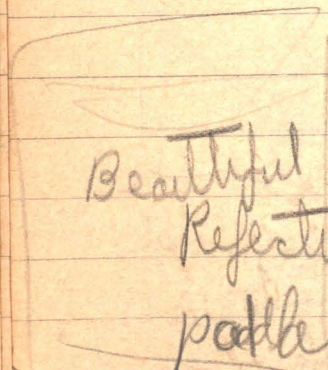 Beautiful
Refecti
paddle